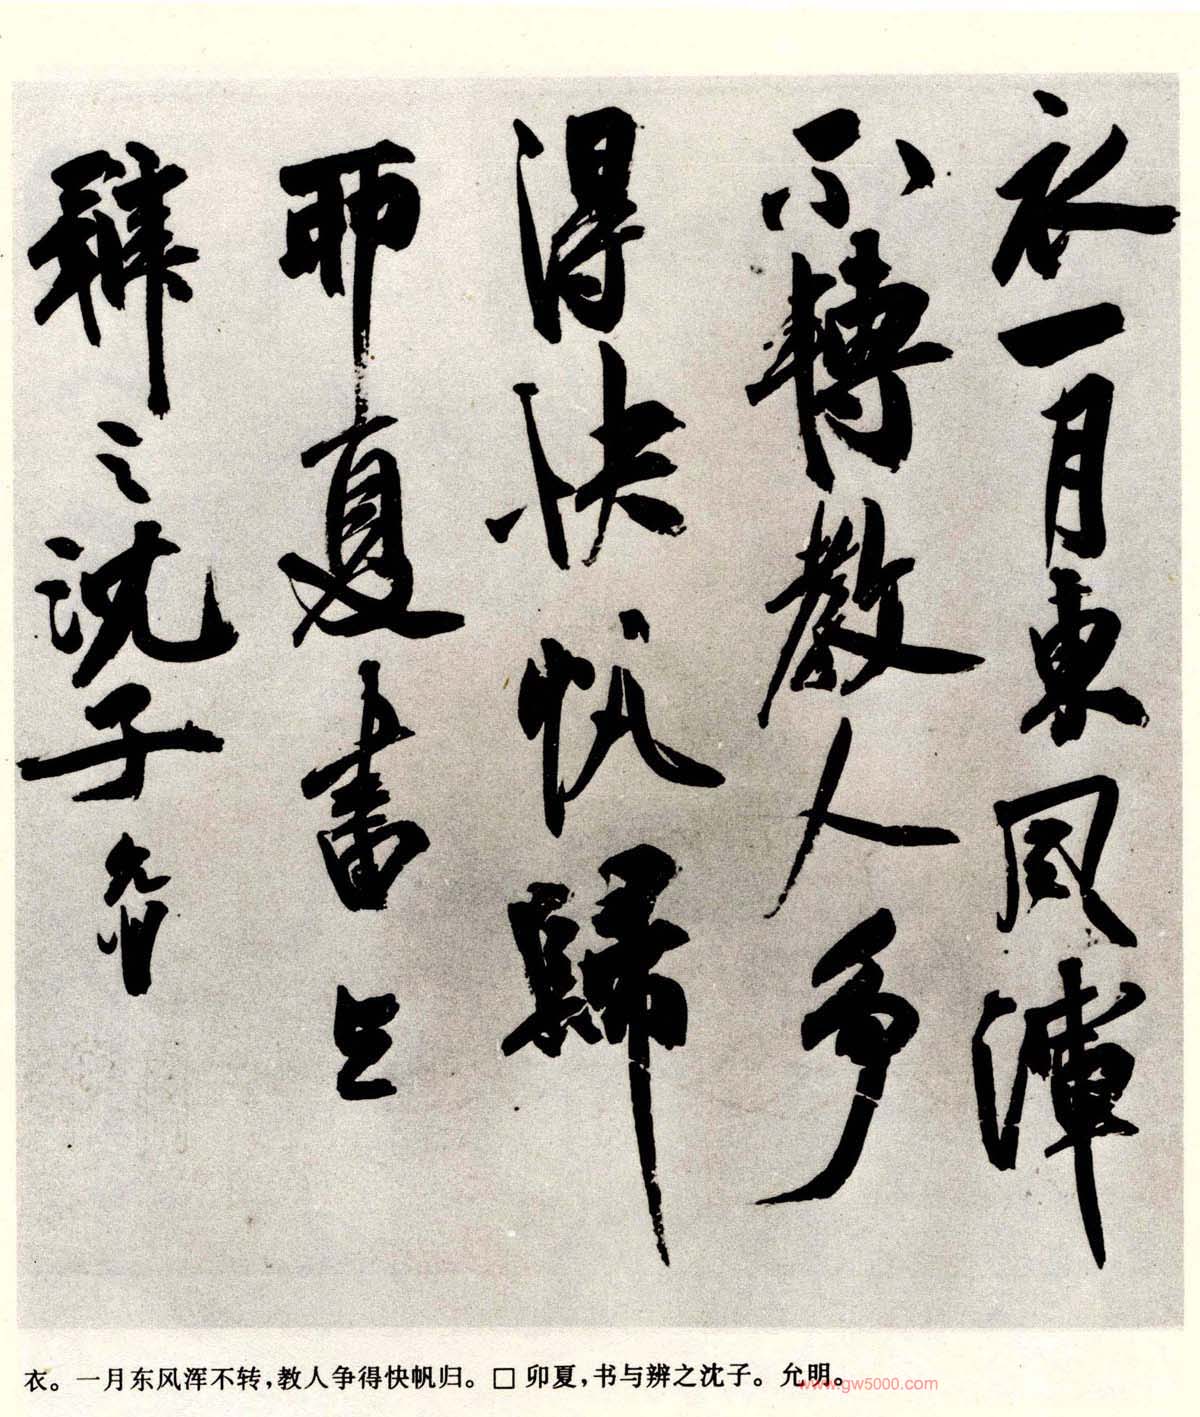 衣一月東風渾
不轉教人爭
得快帆歸
卯夏書與
辨之沈子允明
衣。一月东风浑不转，教人争得快帆归。□ 卯夏，书与辨之沈子。允明。
www.gw5000.com